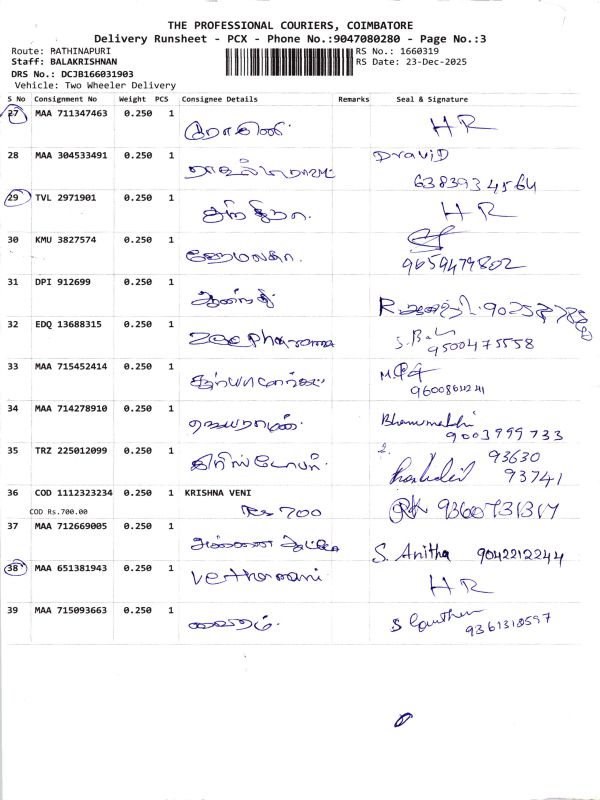 THE PROFESSIONAL COURIERS, COIMBATORE
Delivery Runsheet - PCX - Phone No.:9047080280 - Page No.:3
Route: RATHINAPURI
RS No.: 1660319
Staff: BALAKRISHNAN
RS Date: 23-Dec-2025
DRS No.: DCJB166031903
Vehicle: Two Wheeler Delivery
S No Consignment No Weight PCS Consignee Details Remarks Seal & Signature
27 MAA 711347463 0.250 1 HR
28 MAA 304533491 0.250 1 Dravid
6383934564
29 TVL 2971901 0.250 1 HR
30 KMU 3827574 0.250 1 ஹேமலதா
9659479802
31 DPI 912699 0.250 1
32 EDQ 13688315 0.250 1 Zoo pharama S. Bala
9500475558
33 MAA 715452414 0.250 1
34 MAA 714278910 0.250 1 ஜெயராமன் Bhanumathi
9003999733
35 TRZ 225012099 0.250 1 கிறிஸ்டோபர் 93630
93741
36 COD 1112323234 0.250 1 KRISHNA VENI
COD Rs.700.00 Rs 700 RK 9360731317
37 MAA 712669005 0.250 1 S. Anitha 9042212244
38 MAA 651381943 0.250 1 Vethamani HR
39 MAA 715093663 0.250 1 வைரம். S Gowtham
9361318597